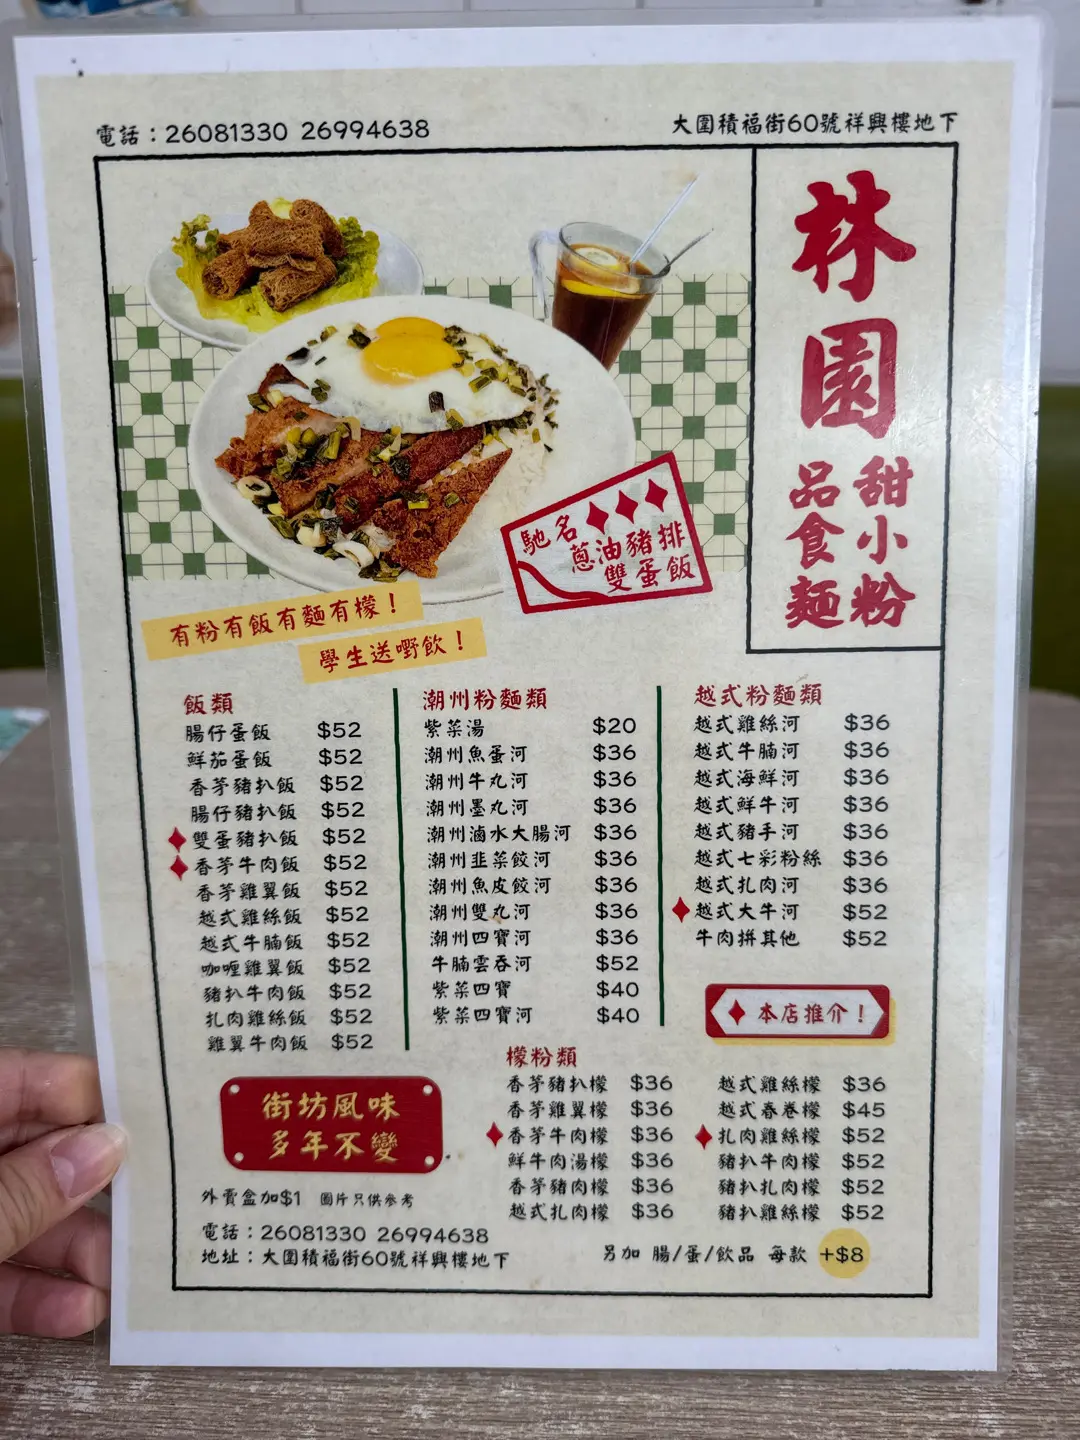 電話：26081330 26994638
大圍積福街60號祥興樓地下
林園
甜品
小食
粉麵
馳名
蔥油豬排
雙蛋飯
有粉有飯有麵有檬！
學生送嘢飲！
飯類
腸仔蛋飯 $52
鮮茄蛋飯 $52
香茅豬扒飯 $52
腸仔豬扒飯 $52
雙蛋豬扒飯 $52
香茅牛肉飯 $52
香茅雞翼飯 $52
越式雞絲飯 $52
越式牛腩飯 $52
咖喱雞翼飯 $52
豬扒牛肉飯 $52
扎肉雞絲飯 $52
雞翼牛肉飯 $52
潮州粉麵類
紫菜湯 $20
潮州魚蛋河 $36
潮州牛丸河 $36
潮州墨丸河 $36
潮州滷水大腸河 $36
潮州韭菜餃河 $36
潮州魚皮餃河 $36
潮州雙丸河 $36
潮州四寶河 $36
牛腩雲吞河 $52
紫菜四寶 $40
紫菜四寶河 $40
越式粉麵類
越式雞絲河 $36
越式牛腩河 $36
越式海鮮河 $36
越式鮮牛河 $36
越式豬手河 $36
越式七彩粉絲 $36
越式扎肉河 $36
越式大牛河 $52
牛肉拼其他 $52
本店推介！
檬粉類
香茅豬扒檬 $36
香茅雞翼檬 $36
香茅牛肉檬 $36
鮮牛肉湯檬 $36
香茅豬肉檬 $36
越式扎肉檬 $36
越式雞絲檬 $36
越式春卷檬 $45
扎肉雞絲檬 $52
豬扒牛肉檬 $52
豬扒扎肉檬 $52
豬扒雞絲檬 $52
街坊風味
多年不變
外賣盒加$1 圖片只供參考
電話：26081330 26994638
地址：大圍積福街60號祥興樓地下
另加 腸/蛋/飲品 每款 +$8